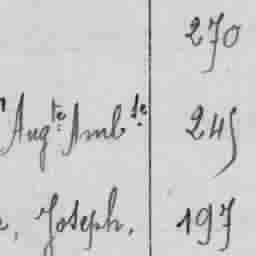 270
Aug.te Amb.se 245
, Joseph. 197